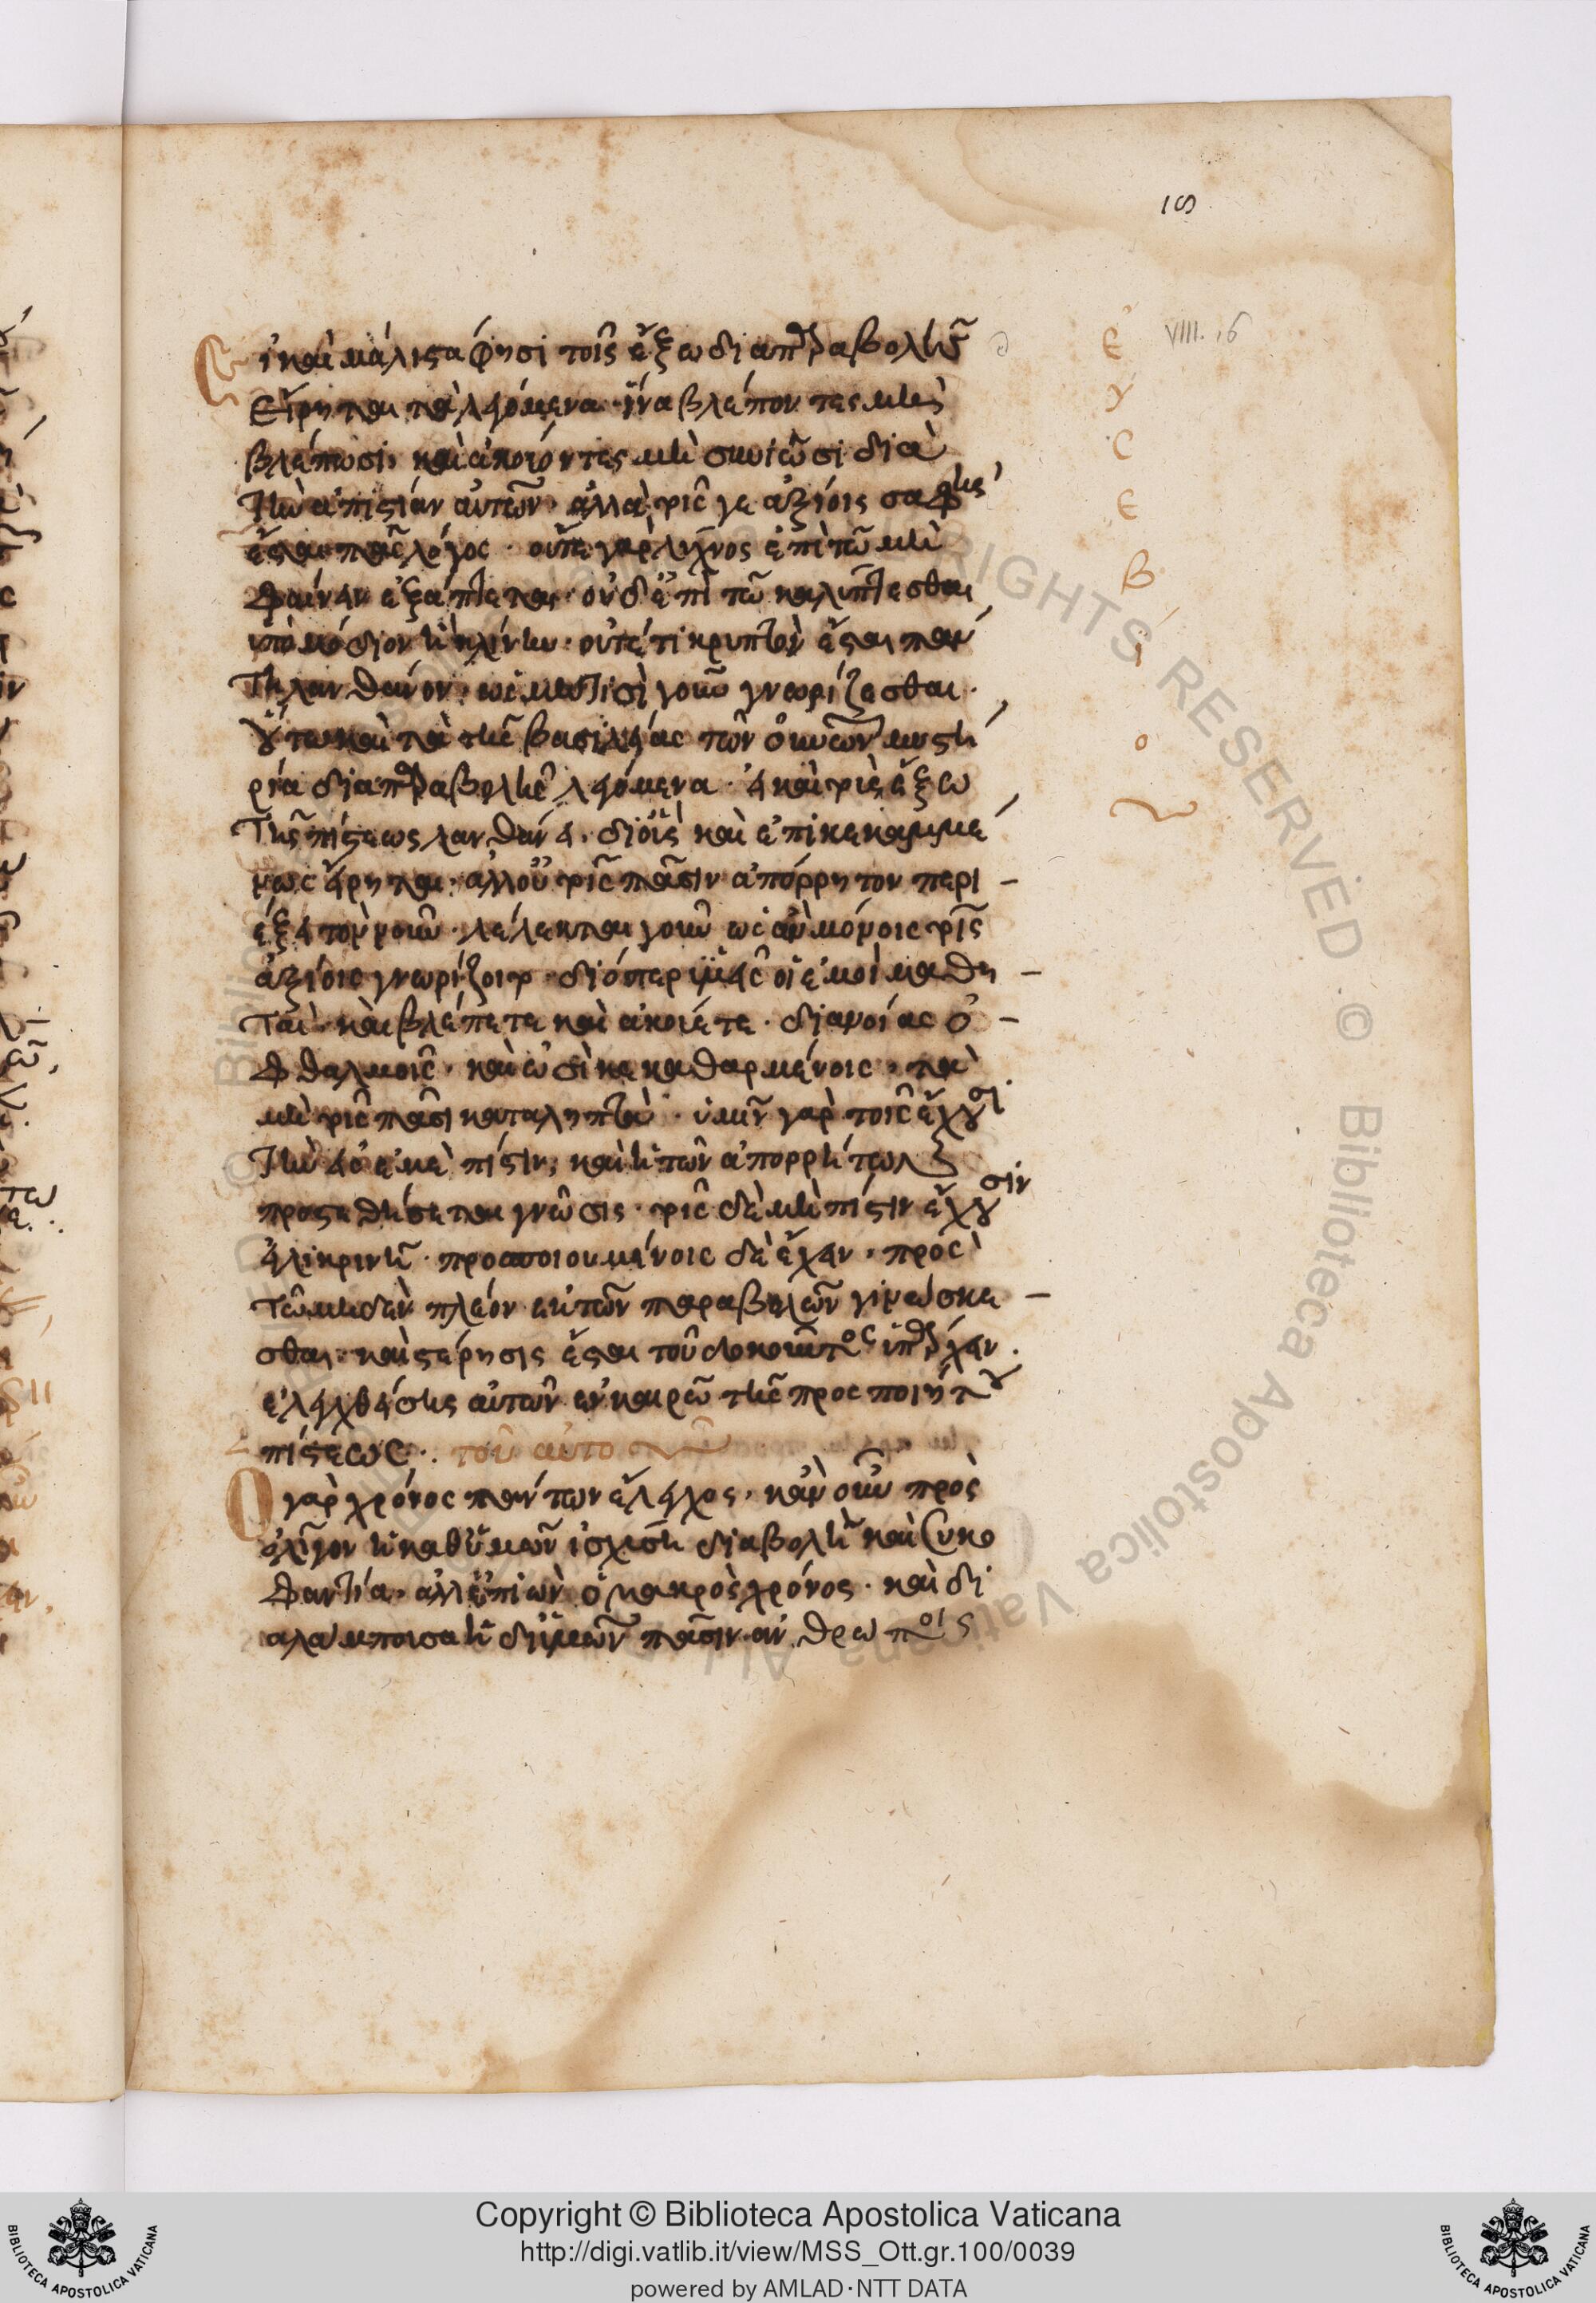 ις
VIII. 16
Εἰ καὶ μάλιστα φησὶ τοῖς ἔξω διὰ παραβολῆς
εἴρηται τὰ λεγόμενα· ἵνα βλέποντες μὴ
βλέπωσι, καὶ ἀκούοντες μὴ συνιῶσι διὰ
τὴν ἀπιστίαν αὐτῶν· ἀλλὰ τοῖς γε ἀξίοις σαφὴς
ἔσται πᾶς λόγος· οὔτε γὰρ λύχνος ἐπὶ τῶ μὴ
φαίνειν ἐξάπτεται· οὐδ' ἐπὶ τῶ καλύπτεσθαι
ὑπὸ μόδιον ἢ κλίνην· οὔτέ τι κρυπτὸν ἔσται παν
τὶ λανθάνον, ὡς μὴ τισὶ γοῦν γνωρίζεσθαι·
οὕτω καὶ τὰ τῆς βασιλείας τῶν οὐνῶν μυστή
ρια διὰ παραβολῆς λεγόμενα· εἰ καὶ τοὺς ἔξω
τῆς πίστεως λανθάνει, διὸ καὶ ἐπικεκαλυμμέ
νως εἴρηται, ἀλλ' οὐ τοῖς πᾶσιν ἀπόρρητον περι
έξει τὸν νοῦν· λέλεκται γοῦν ὡς ἂν μόνοις τοῖς
ἀξίοις γνωρίζοιτο· διόπερ ὑμεῖς οἱ ἐμοὶ μαθη
ταὶ, καὶ βλέπετε καὶ ἀκούετε· διανοίας ὀ
φθαλμοῖς, καὶ ὠσὶ κεκαθαρμένοις, τὰ
μὴ τοῖς πᾶσι καταληπτὰ· ὑμῖν γὰρ τοῖς ἔχουσι
τὴν εἰς ἐμὲ πίστιν, καὶ ἡ τῶν ἀπορρήτων
προστεθήσεται γνῶσις· τοῖς δὲ μὴ πίστιν ἔχουσιν
εἰλικρινῆ· προσποιουμένοις δὲ ἔχειν, πρὸς
τῶ μηδὲν πλέον ἐκ τῶν παραβολῶν γινώσκε
σθαι, καὶ στέρησις ἔσται τοῦ δοκοῦντος ὑπάρχειν·
ἐλεγχθείσης αὐτῶν ἐν καιρῶ τῆς προσποιήτου
πίστεως:· τοῦ αὐτοῦ
Ὁ γὰρ χρόνος πάντων ἔλεγχος, κἂν οὖν πρὸς
ὀλίγον ἡ καθ' ὑμῶν ἰσχύση διαβολὴ καὶ συκο
φαντία, ἀλλ' ἐπιὼν ὁ μακρὸς χρόνος· καὶ δι
αλάμπουσα ἡ δι' ὑμῶν πᾶσιν ἀνθρώποις
Ε
Υ
С
Ε
Β
ί
ο
Copyright © Biblioteca Apostolica Vaticana
http://digi.vatlib.it/view/MSS_Ott.gr.100/0039
powered by AMLAD·NTT DATA
BIBLIOTECA APOSTOLICA VATICANA
BIBLIOTECA APOSTOLICA VATICANA